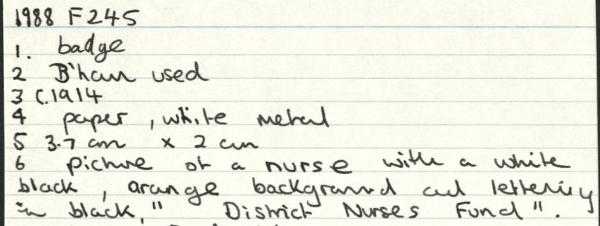 1988 F245
1. badge
2 B'ham used
3 C.1914
4 paper, white metal
5 3.7 cm x 2 cm
6 picture of a nurse with a white
black, orange background and lettering
in black, " District Nurses Fund".